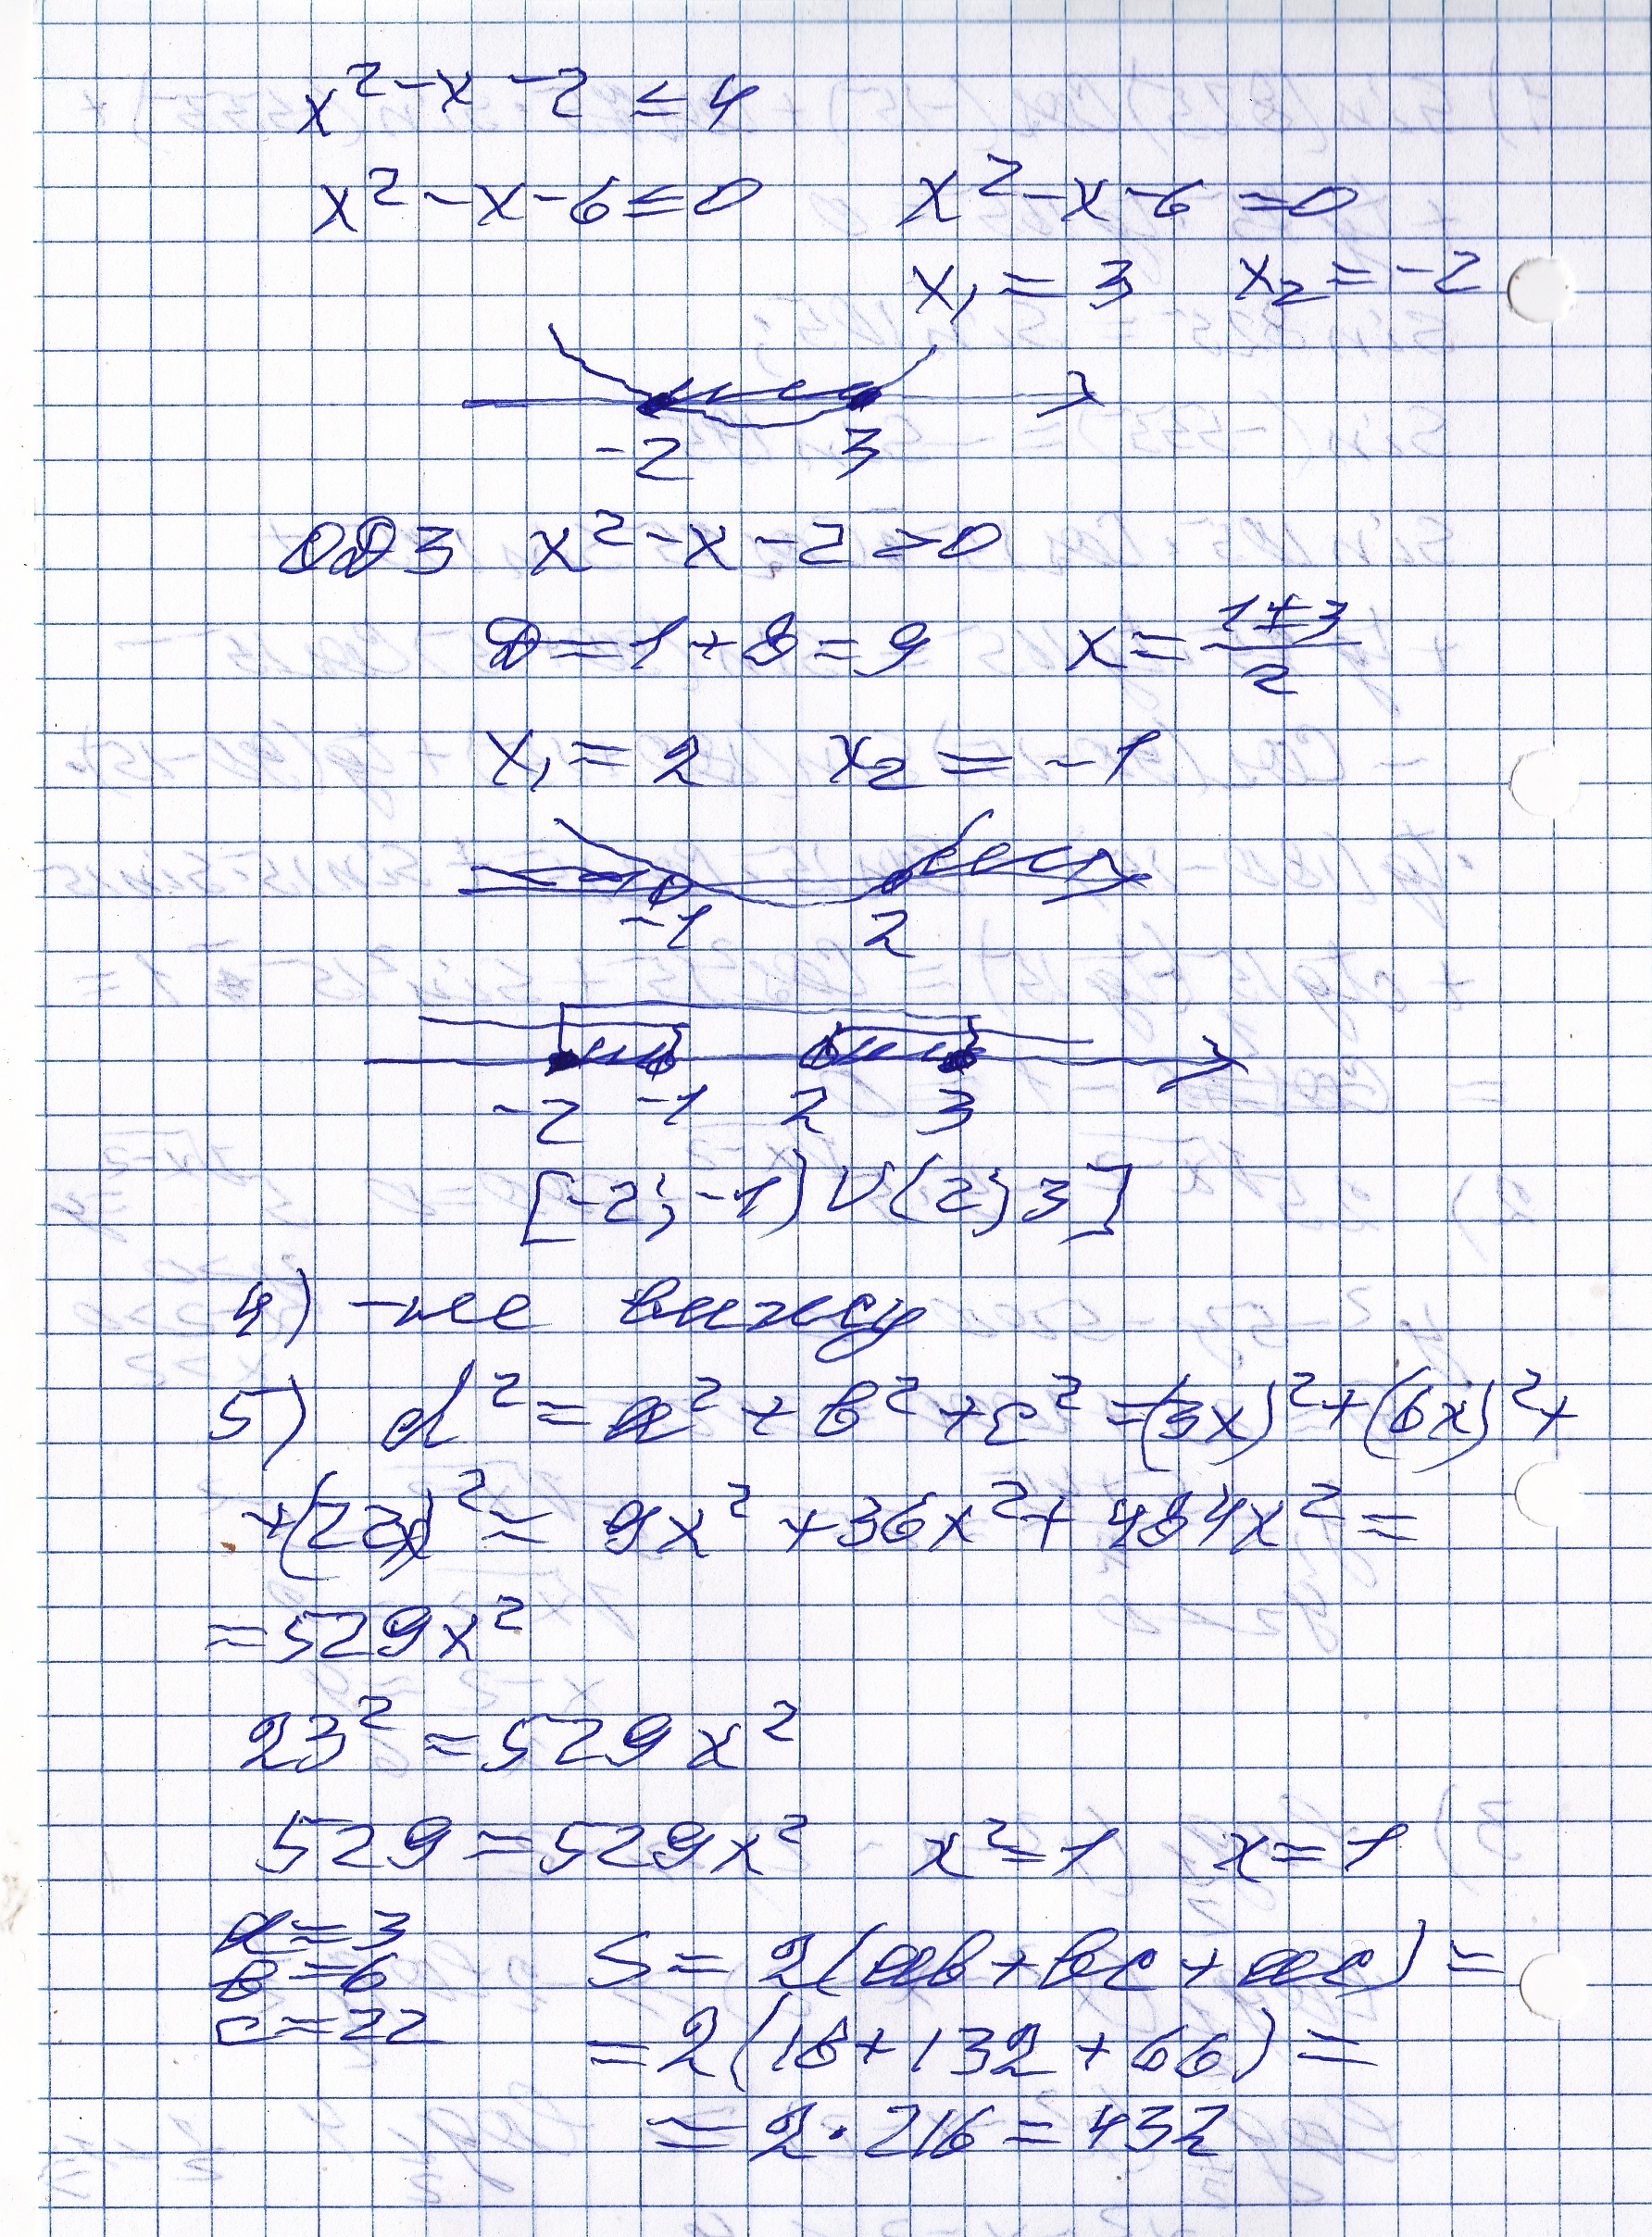 x² - x - 2 ≤ 4
x² - x - 6 ≤ 0 x² - x - 6 = 0
x₁ = 3 x₂ = -2
-2 3
ОДЗ x² - x - 2 > 0
D = 1 + 8 = 9 x = (1 ± 3)/2
x₁ = 2 x₂ = -1
-1 2
-2 -1 2 3
[-2; -1) ∪ (2; 3]
4) - не вижу
5) d² = a² + b² + c² = (3x)² + (6x)² +
+ (22x)² = 9x² + 36x² + 484x² =
= 529x²
23² = 529x²
529 = 529x² x² = 1 x = 1
a = 3
b = 6 S = 2(ab + bc + ac) =
c = 22 = 2(18 + 132 + 66) =
= 2 · 216 = 432